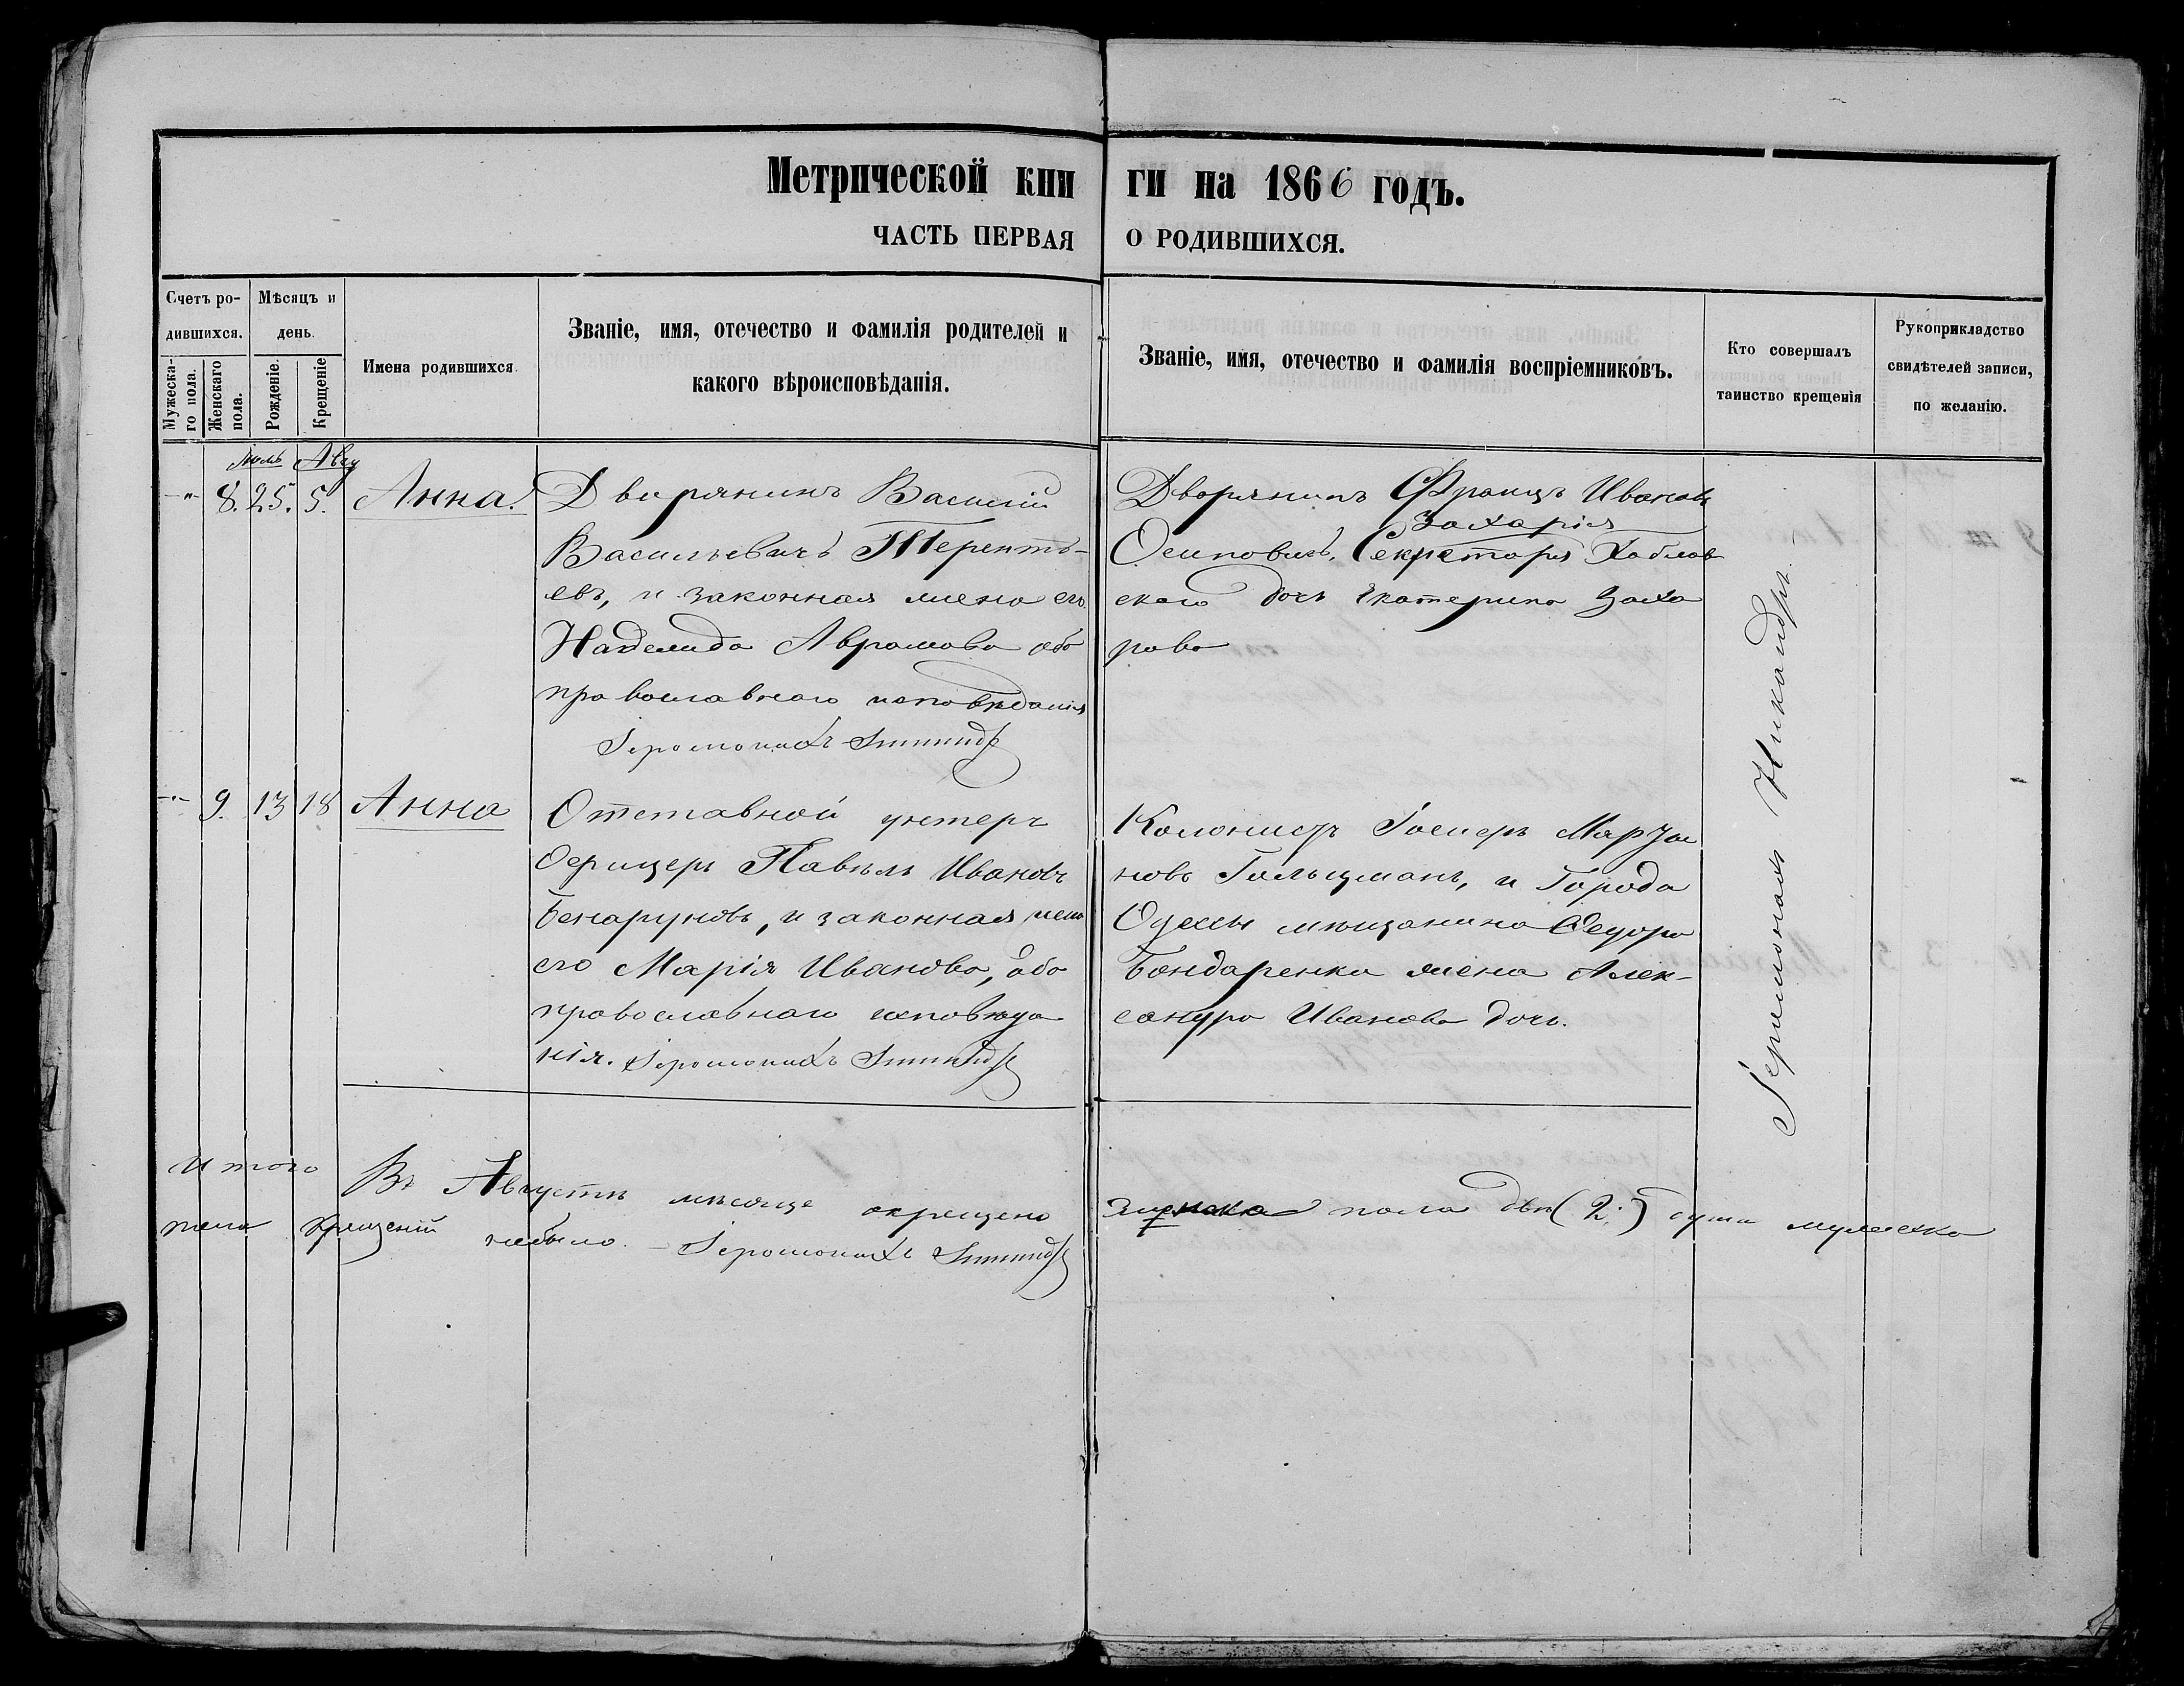 Метрической кни ги на 1866 годъ.
ЧАСТЬ ПЕРВАЯ О РОДИВШИХСЯ.
Счетъ ро-
дившихся.
Мужеска-
го пола.
Женскаго
пола.
Мѣсяцъ и
день.
Рожденіе.
Крещеніе
Имена родившихся.
Званіе, имя, отечество и фамилія родителей и
какого вѣроисповѣданія.
Званіе, имя, отечество и фамилія воспріемниковъ.
Кто совершалъ
таинство крещенія
Рукоприкладство
свидѣтелей записи,
по желанію.
Іюль Авгу
-"- 8. 25. 5. Анна.
Дворянинъ Василій
Васильевичъ Теренть-
евъ, и законная жена его
Надежда Аврамова обо
православнаго исповѣданія
Іеромонахъ
Дворянинъ Францъ Ивановъ
Захарія
Осиповичъ, Секретаря
скаго дочь Екатерина Заха
рова
-"- 9. 13 18 Анна
Отставной унтеръ
Офицеръ Павелъ Ивановъ
и законная жена
его Марія Иванова, обо
православнаго исповѣда
нія. Іеромонахъ
Колонистъ
новъ Гольцманъ, и Города
Одессы мѣщанина Федора
Бондаренка жена Алек-
сандра Иванова дочь.
Іеромонахъ Никандръ.
Итого Въ Августѣ мѣсяце окрещено женска пола двѣ (2.) душа мужеска
пола крещеній небыло. - Іеромонахъ